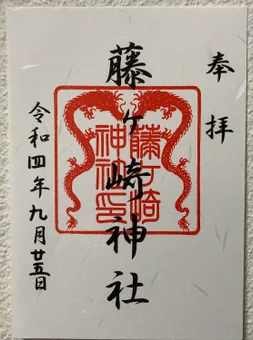 奉拝
藤ヶ崎神社
藤ヶ崎
神社印
令和四年九月廿五日